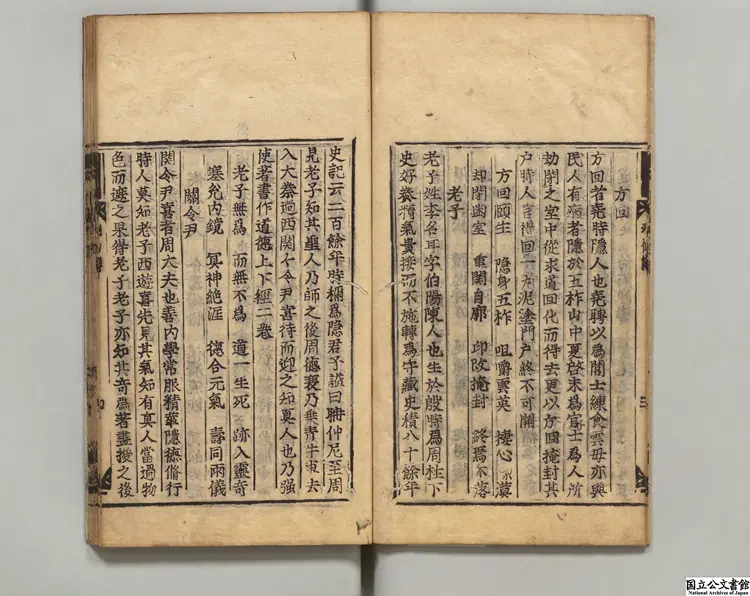 方回
方回者堯時隱人也堯聘以爲閭士練食雲母亦與
民人有病者隱於五柞山中夏啓末爲宦士爲人所
劫閉之室中從求道回化而得去更以方回掩封其
戶時人言得回一丸泥塗門戶終不可開
方回頤生 隱身五柞 咀嚼雲英 棲心隙漠
却閉幽室 重關自廓 印改掩封 終焉不落
老子
老子姓李名耳字伯陽陳人也生於殷時爲周柱下
史好養精氣貴接而不施轉爲守藏史積八十餘年
史記云二百餘年時稱爲隱君子謚曰聃仲尼至周
見老子知其聖人乃師之後周德衰乃乘青牛車去
入大秦過西關〻令尹喜待而迎之知真人也乃强
使著書作道德上下經二卷
老子無爲 而無不爲 道一生死 跡入靈奇
塞兌內鏡 冥神絕涯 德合元氣 壽同兩儀
關令尹
關令尹喜者周大夫也善內學常服精華隱德脩行
時人莫知老子西遊喜先見其氣知有真人當過物
色而遮之果得老子老子亦知其奇爲著書授之後
国立公文書館
National Archives of Japan